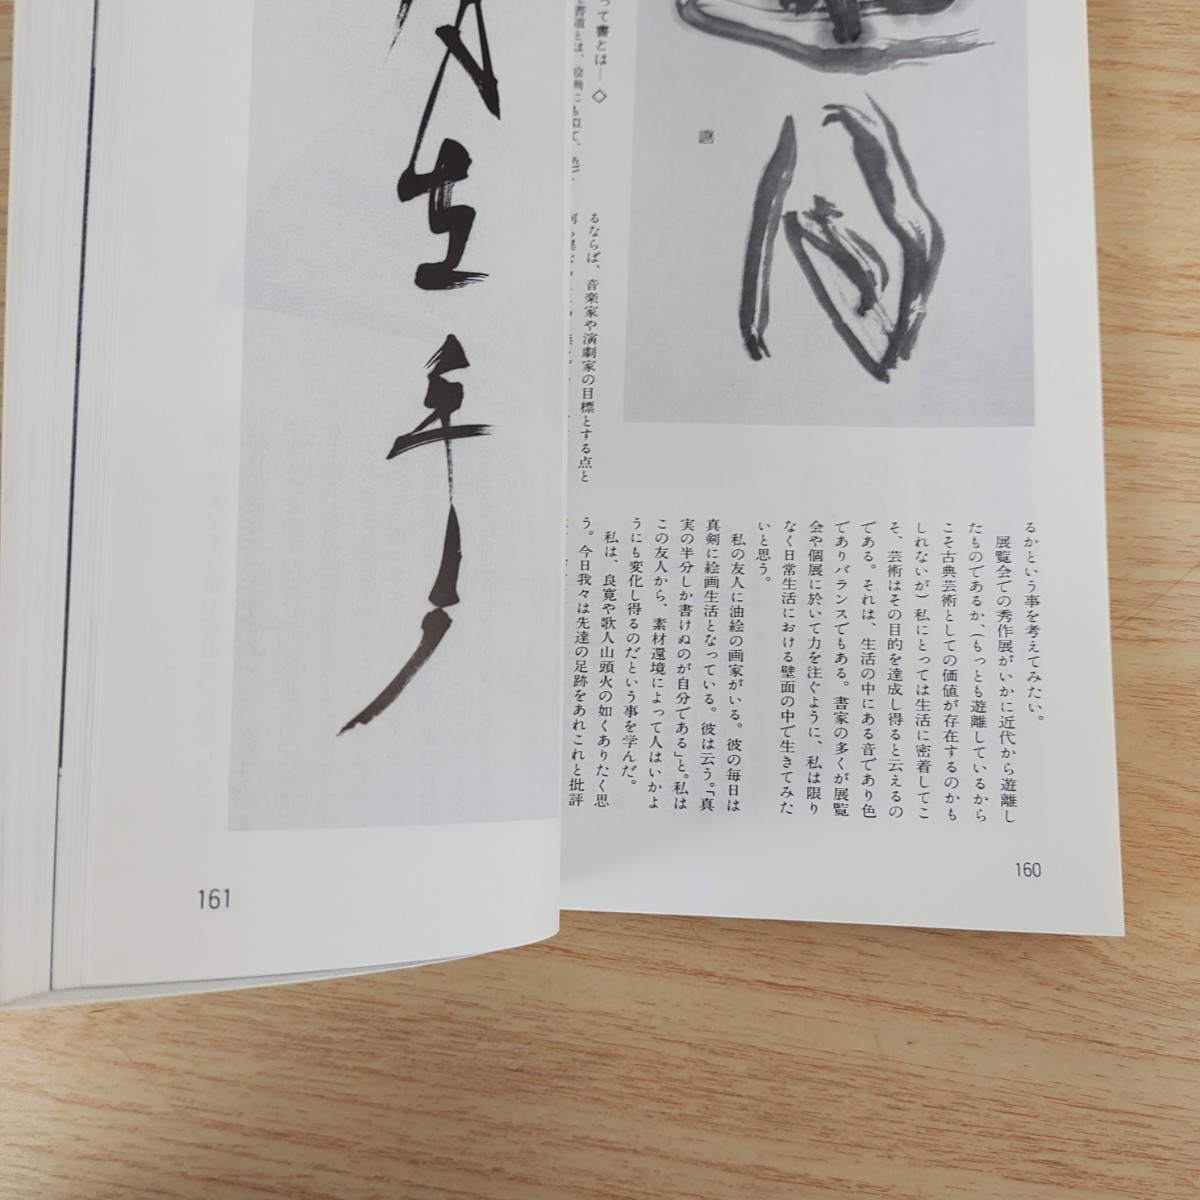 って書とは―◇
るならば、音楽家や演劇家の目標とする点と
るかという事を考えてみたい。
展覧会での秀作展がいかに近代から遊離し
たものであるか、(もっとも遊離しているから
こそ古典芸術としての価値が存在するのかも
しれないが)私にとっては生活に密着してこ
そ、芸術はその目的を達成し得ると云えるの
である。それは、生活の中にある音であり色
でありバランスでもある。書家の多くが展覧
会や個展に於いて力を注ぐように、私は限り
なく日常生活における壁面の中で生きてみた
いと思う。
私の友人に油絵の画家がいる。彼の毎日は
真剣に絵画生活となっている。彼は云う。「真
実の半分しか書けぬのが自分である」と。私は
この友人から、素材環境によって人はいかよ
うにも変化し得るのだという事を学んだ。
私は、良寛や歌人山頭火の如くありたく思
う。今日我々は先達の足跡をあれこれと批評
160
161